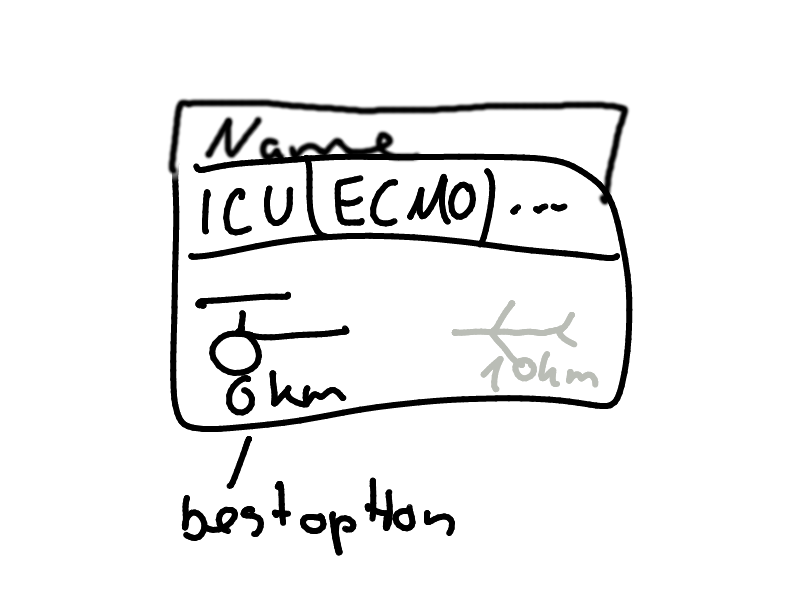 Name
ICU ECMO ...
0km 10km
best option